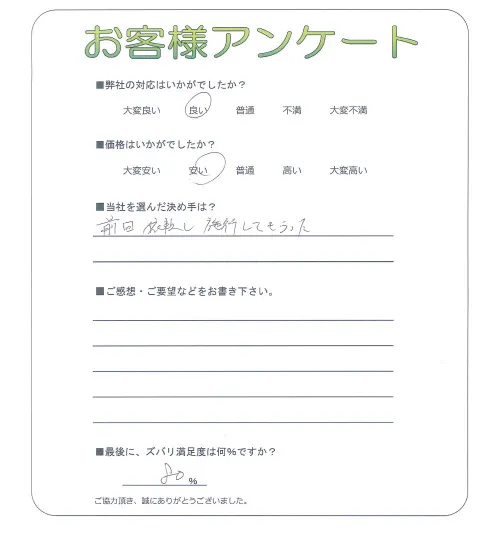 お客様アンケート
■弊社の対応はいかがでしたか？
大変良い 良い 普通 不満 大変不満
■価格はいかがでしたか？
大変安い 安い 普通 高い 大変高い
■当社を選んだ決め手は？
前回 依頼し 施行してもらった
■ご感想・ご要望などをお書き下さい。
■最後に、ズバリ満足度は何％ですか？
80 %
ご協力頂き、誠にありがとうございました。